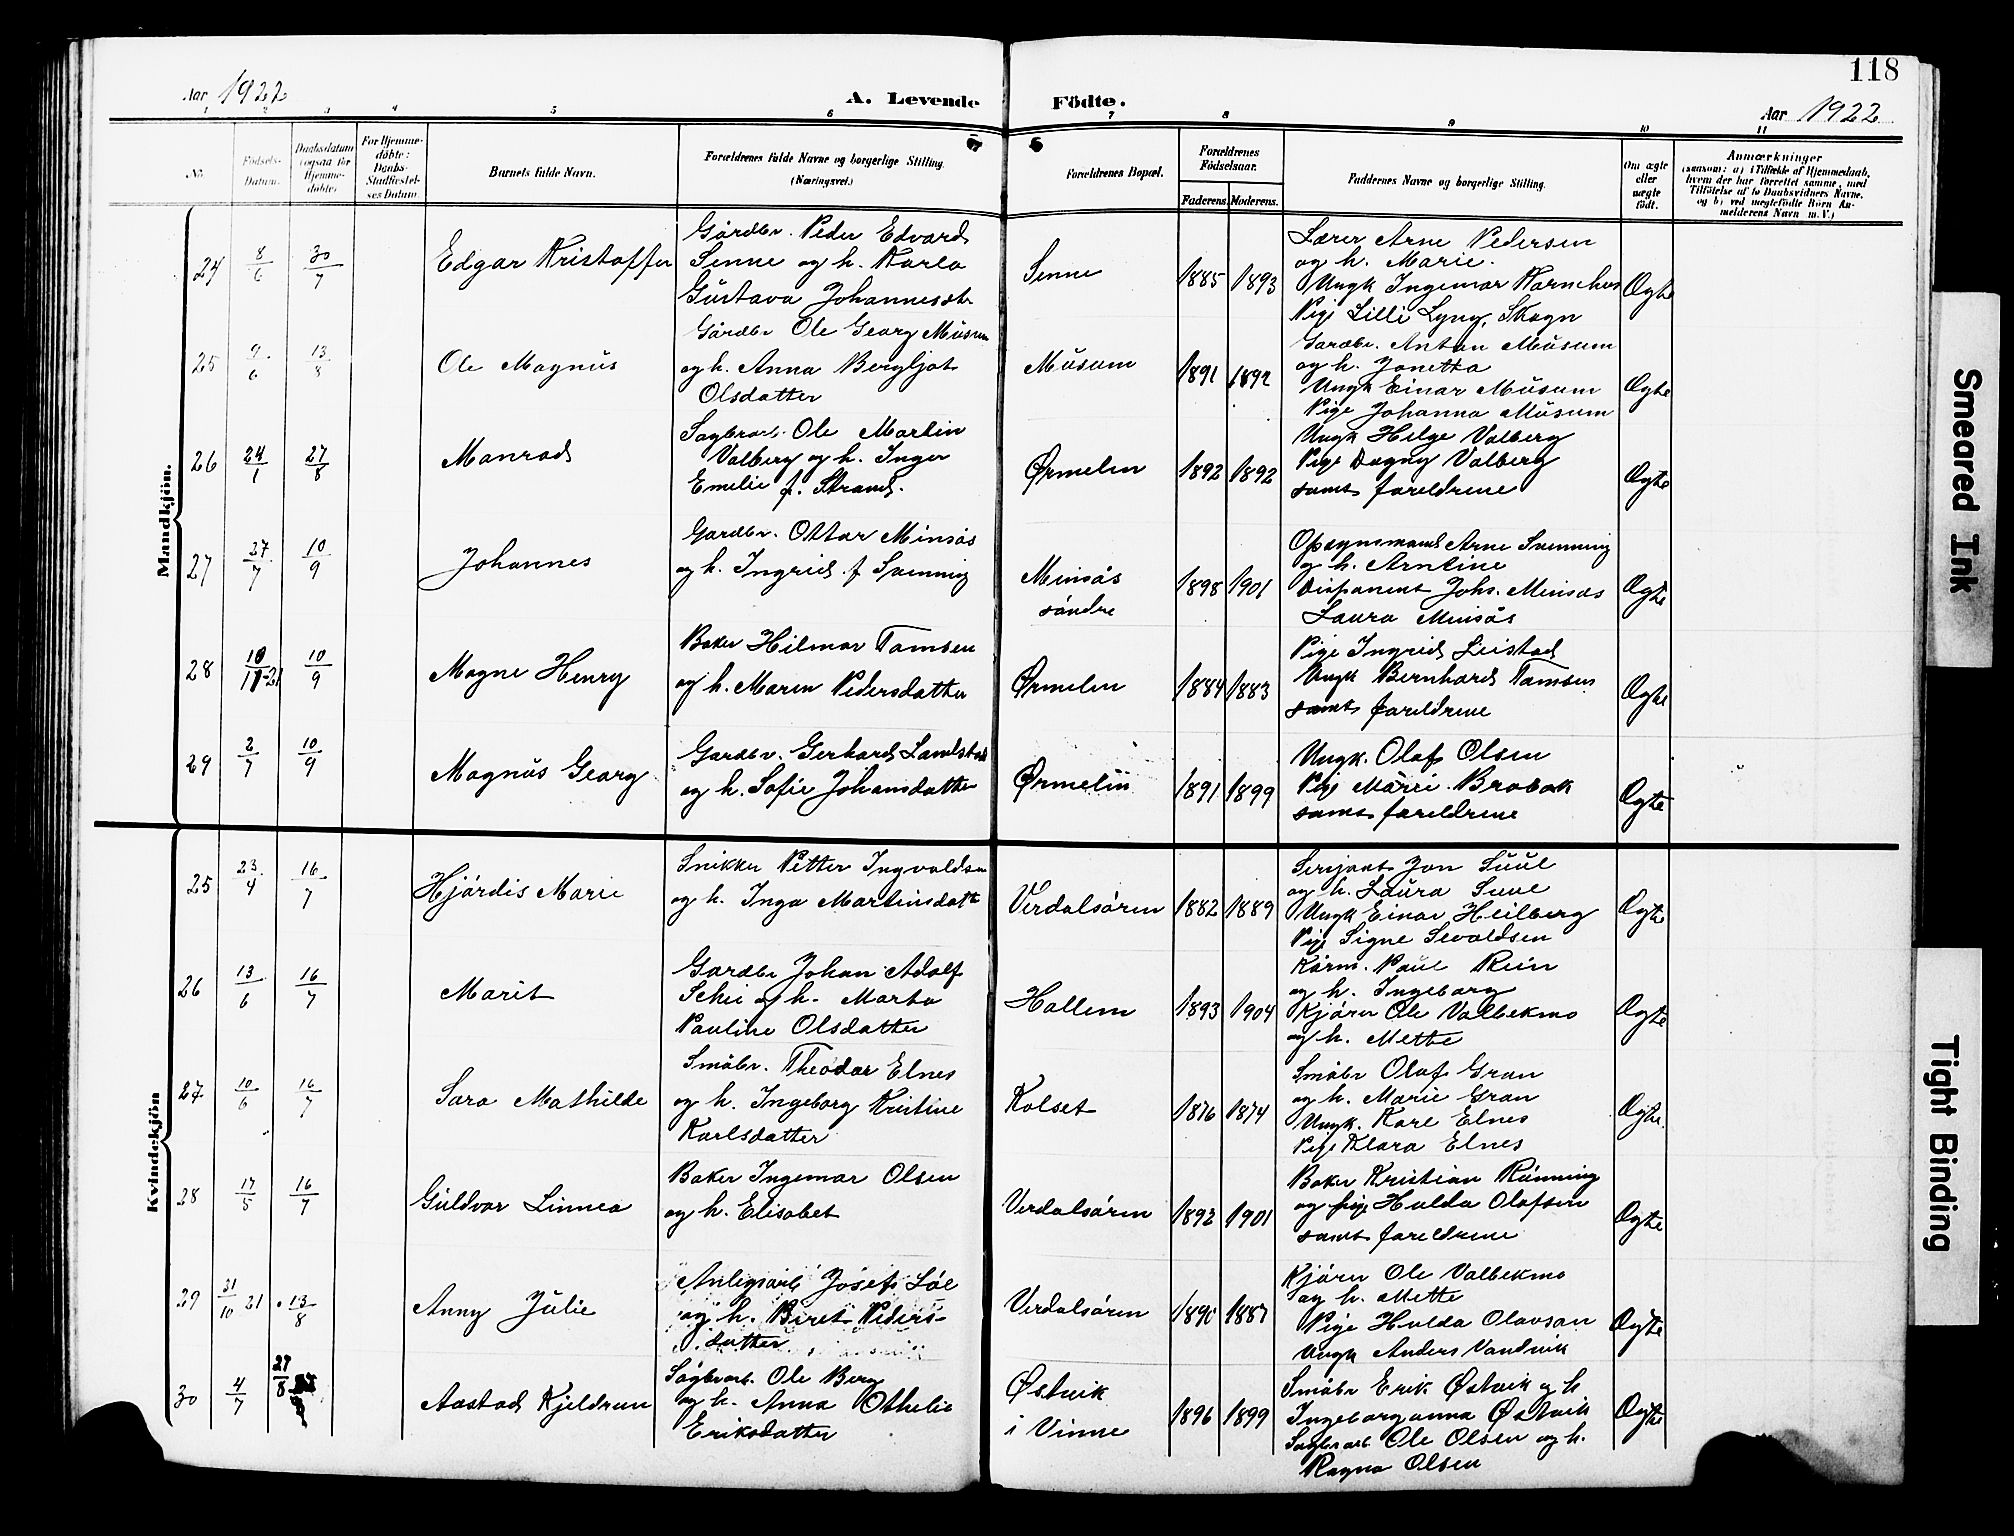 118
Aar 1922 A. Levende Födte. Aar 1922
1 2 3 4 5 6 7 8 9 10 11
No.
Födsels-Datum.
Daabsdatum (ogsaa for Hjemme-döbte)
For Hjemme-döbte: Daabs-Stadfæstel-ses Datum
Barnets fulde Navn.
Forældrenes fulde Navne og borgerlige Stilling. (Næringsvei.)
Forældrenes Bopæl.
Forældrenes Födselsaar.
Faderens. Moderens.
Faddernes Navne og borgerlige Stilling.
Om ægte eller uægte födt.
Anmærkninger
(saasom: a) i Tilfælde af Hjemmedaab, hvem der har forrettet samme, med Tilföielse af to Daabsvidners Navne, og b) ved uægtefödte Börn Anmelderens Navn m. V.)
Mandkjön.
24 8/6 30/7 Edgar Kristoffer
Gårdbr. Peder Edvard
Senne og h. Karla
Gustava Johannesdtr
Senne 1885 1893
Lærer Arne Pedersen
og h. Marie.
Ungk Ingemar Kornehus
Pige Lilli Lyng, Skogn
Ægte
25 9/6 13/8 Ole Magnus
Gårdbr Ole Georg Musum
og h. Anna Bergljot
Olsdatter
Musum 1891 1892
Gardbr. Anton Musum
og h. Jonetta
Ungk Einar Musum
Pige Johanna Musum
Ægte
26 24/1 27/8 Manrad
Sagbrarb. Ole Martin
Valberg og h. Inger
Emelie f. Strand.
Ørmelen 1892 1892
Ungk Helge Valberg
Pige Dagny Valberg
samt foreldrene
Ægte
27 27/7 10/9 Johannes
Gardbr. Ottar Minsås
og h. Ingrid f Svenning
Minsås
söndre
1898 1901
Opsynsmand Arne Svenning
og h. Arntine
Disponent Johs. Minsås
Laura Minsås
Ægte
28 10/11-21 10/9 Magne Henry
Baker Hilmar Tomsen
og h. Maren Pedersdatter
Ørmelen 1884 1883
Pige Ingrid Leistad
Ungk Bernhard Tomsen
samt foreldrene
Ægte
29 2/7 10/9 Magnus Georg
Gardbr. Gerhard Landstad
og h. Sofie Johansdatter
Ørmelen 1891 1899
Ungk. Olaf Olsen
Pige Marie Brobak
samt foreldrene
Ægte
Kvindekjön
25 23/4 16/7 Hjördis Marie
Snikker Petter Ingvaldsen
og h. Inga Martinsdatt
Verdalsören 1882 1889
Sersjant Jon Suul
og h. Laura Suul
Ungk Einar Heilberg
Pige Signe Sevaldsen
Ægte
26 13/6 16/7 Marit
Gardbr Johan Adolf
Schei og h. Marta
Pauline Olsdatter
Hallem 1893 1904
Kårm. Paul Rein
og h. Ingeborg
Kjörer Ole Valbekmo
og h. Mette
Ægte
27 10/6 16/7 Sara Mathilde
Småbr. Theodor Elnes
og h. Ingeborg Kristine
Karlsdatter
Kolset 1876 1874
Småbr Olaf Gran
og h. Marie Gran
Ungk. Kare Elnes
Pige Klara Elnes
Ægte.
28 17/5 16/7 Guldvor Linnea
Baker Ingemar Olsen
og h. Elisabet
Verdalsören 1892 1901
Baker Kristian Rönning
og pige Hulda Olafsen
samt foreldrene
Ægte
29 31/10 21 13/8 Anny Julie
Anlegsarb Josef Löe
og h. Beret Peders-
datter
Verdalsören 1887
Kjörer Ole Valbekmo
og h. Mette
Pige Hulda Olavsan
Ungk Anders Vandvik
Ægte
30 4/7 27/8 Aastad Kjeldrun
Sagbrarb. Ole Berg
og h. Anna Othelie
Eriksdatter
Østvik
i Vinne
1896 1899
Småbr Erik Østvik og h
Ingeborganna Østvik
Sagbrarb Ole Olsen og h.
Ragna Olsen
Ægte
Smeared Ink
Tight Binding